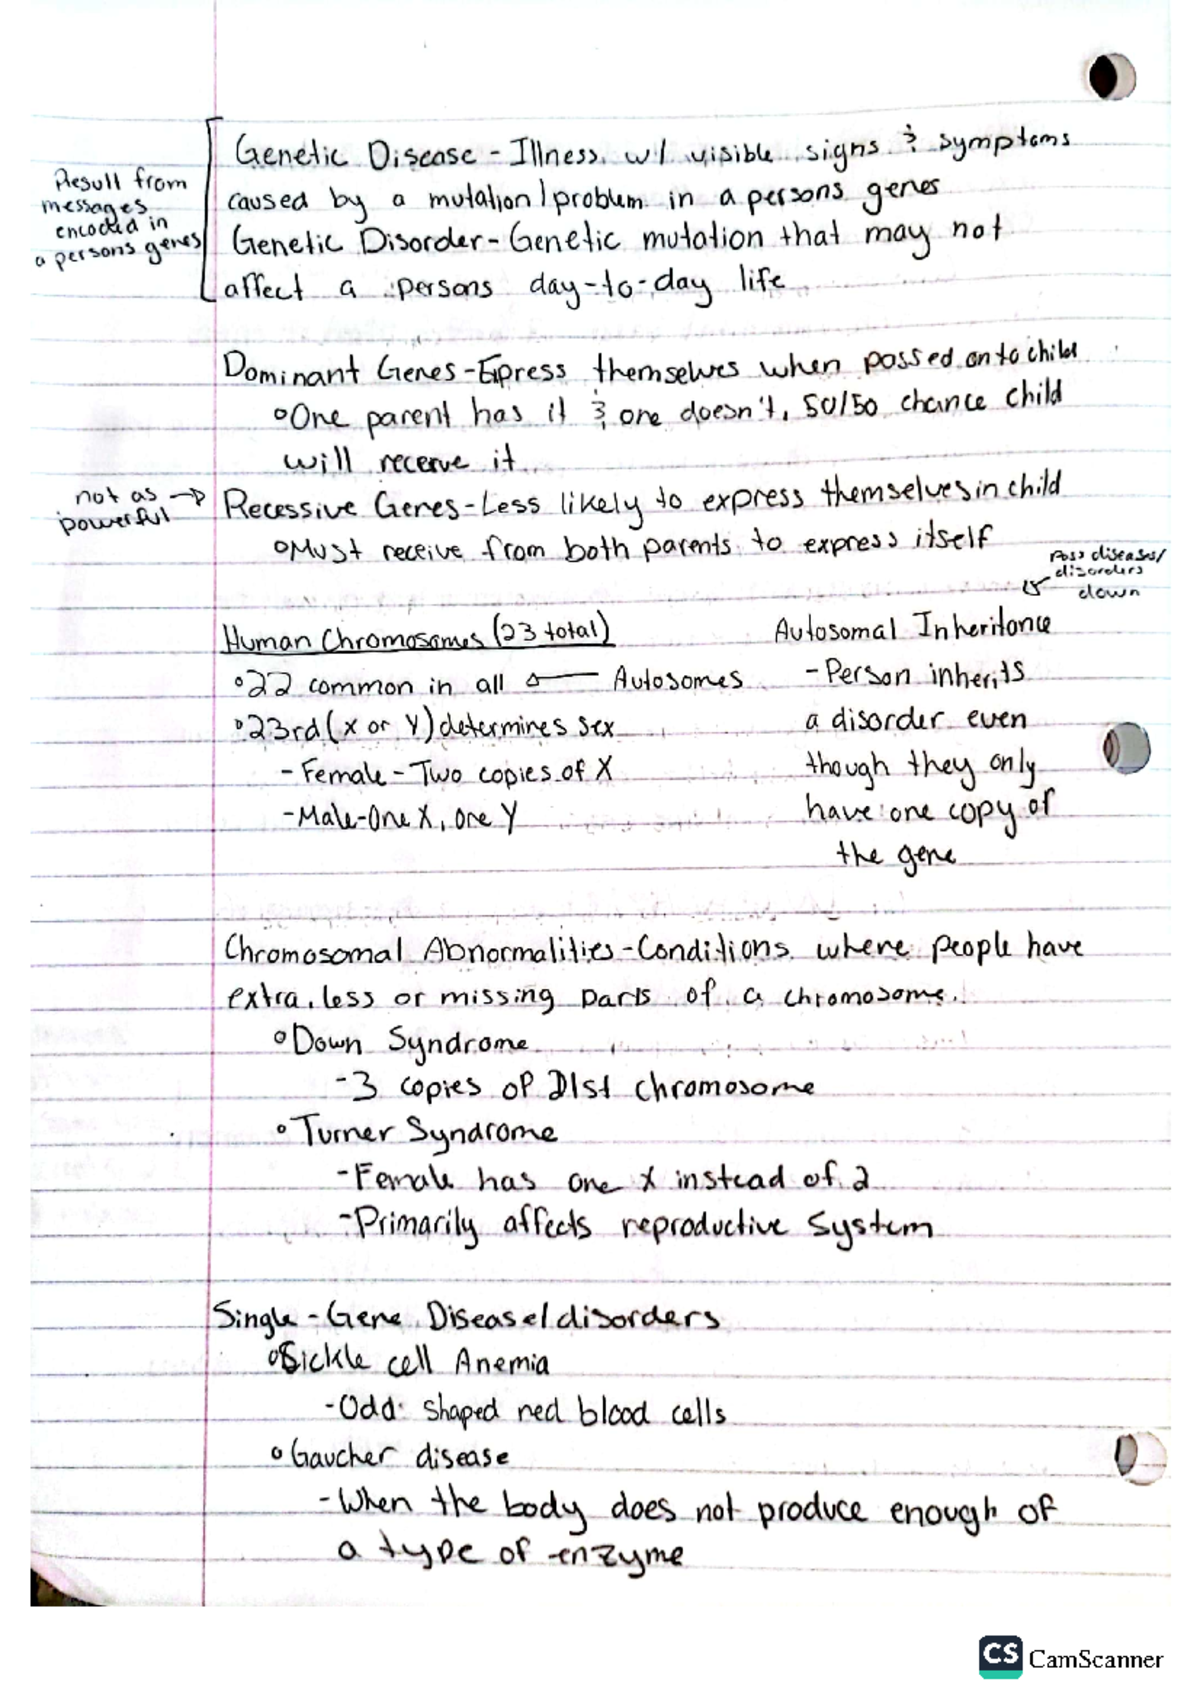 Genetic Disease - Illness w/ visible signs & symptoms
caused by a mutation/problem in a persons genes
Genetic Disorder - Genetic mutation that may not
affect a persons day-to-day life
Result from
messages
encoded in
a persons genes
Dominant Genes - Express themselves when passed onto child
One parent has it & one doesn't, 50/50 chance child
will receive it
not as →
powerful
Recessive Genes - Less likely to express themselves in child
Must receive from both parents to express itself
Pass diseases/
disorders
down
Human Chromosomes (23 total)
22 common in all ← Autosomes
23rd (X or Y) determines sex
- Female - Two copies of X
- Male - One X, one Y
Autosomal Inheritance
- Person inherits
a disorder even
though they only
have one copy of
the gene
Chromosomal Abnormalities - Conditions where people have
extra, less or missing parts of a chromosome.
Down Syndrome
- 3 copies of 21st chromosome
Turner Syndrome
- Female has one X instead of 2
- Primarily affects reproductive system
Single-Gene Disease/disorders
Sickle cell Anemia
- Odd shaped red blood cells
Gaucher disease
- When the body does not produce enough of
a type of enzyme
CS CamScanner